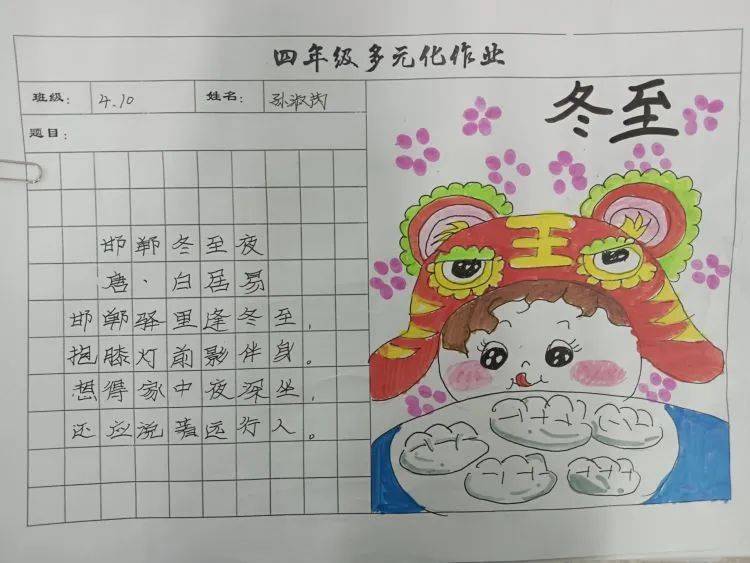 四年级多元化作业
班级: 4.10 姓名: 孙淑
题目:
冬至
王
邯郸冬至夜
唐·白居易
邯郸驿里逢冬至,
抱膝灯前影伴身。
想得家中夜深坐,
还应说着远行人。